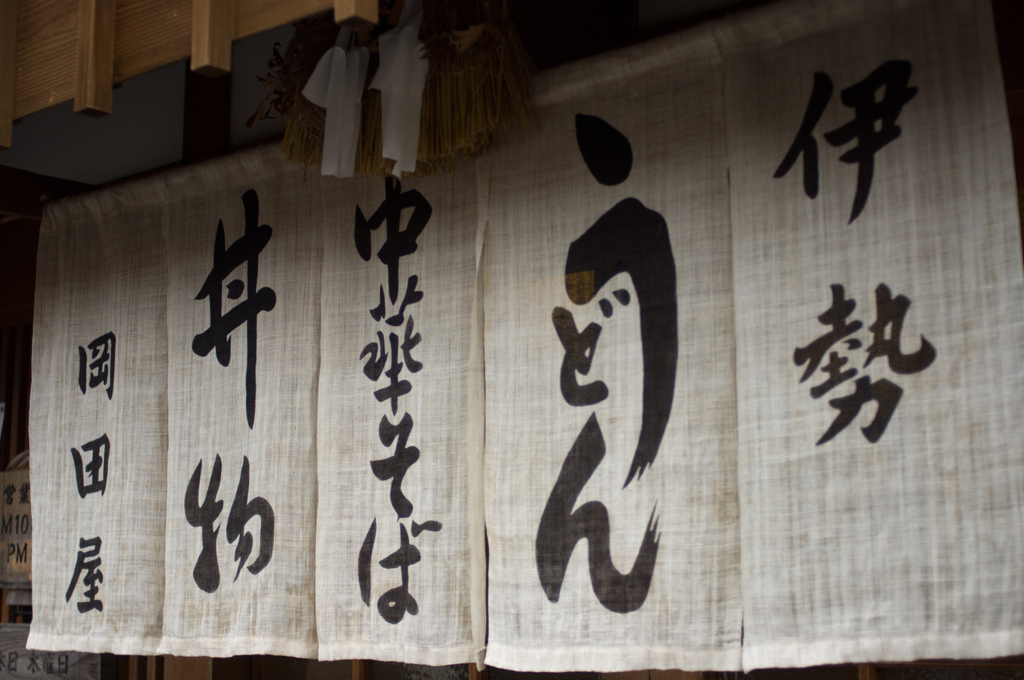 伊勢
うどん
中華そば
丼物
岡田屋
営業
M10
PM
木曜日